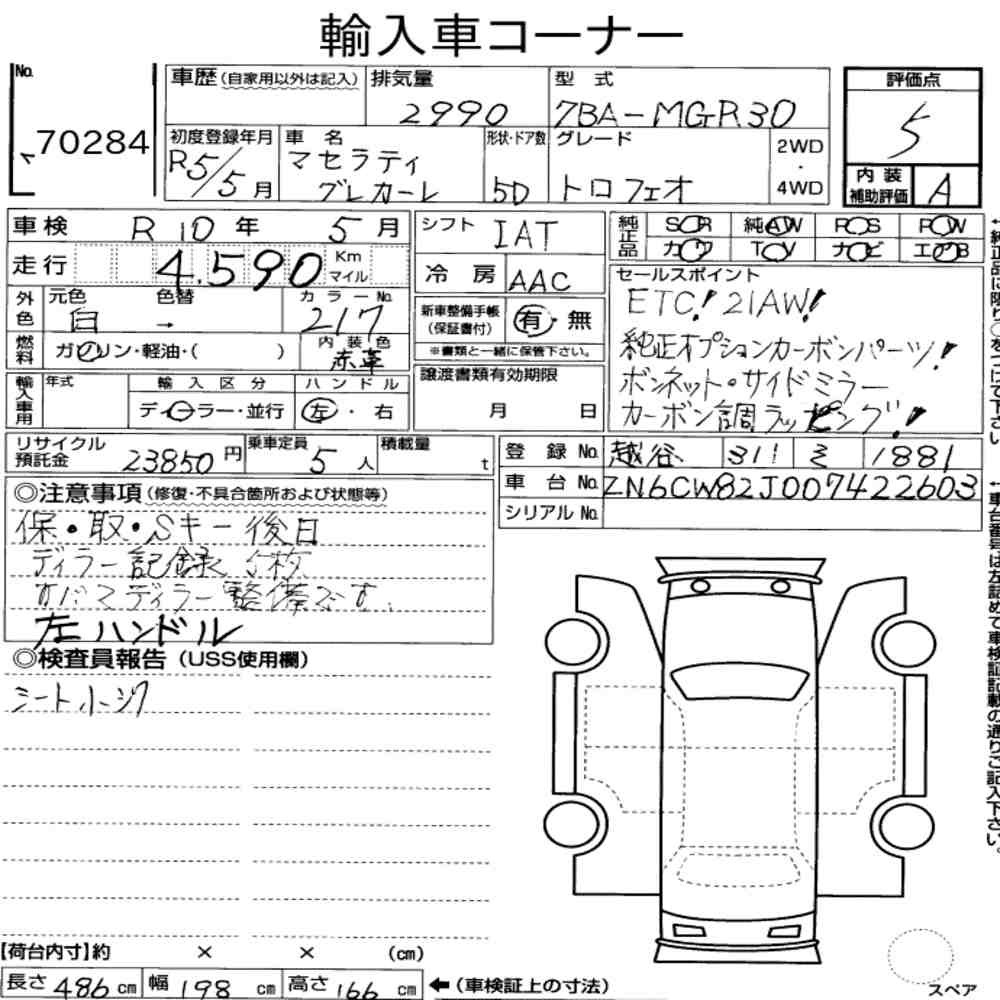 輸入車コーナー
No. 70284
車歴(自家用以外は記入)
排気量 2990
型式 7BA-MGR30
評価点 5
初度登録年月 R5/5月
車名 マセラティ グレカーレ
形状・ドア数 5D
グレード トロフェオ
2WD・4WD
内装補助評価 A
車検 R10年5月
シフト IAT
純正品 SR 純AW PS PW
カワ TV ナビ エアB
走行 4,590 Km マイル
冷房 AAC
セールスポイント
ETC! 21AW!
純正オプションカーボンパーツ!
ボンネット・サイドミラー
カーボン調ラッピング!
外色 元色 白 → 色替 カラーNo. 217
新車整備手帳(保証書付) 有・無
※書類と一緒に保管下さい。
燃料 ガソリン・軽油・( )
内装色 赤革
輸入車用 年式 輸入区分 ハンドル
ディーラー・並行 左・右
譲渡書類有効期限
月 日
リサイクル預託金 23850円
乗車定員 5人
積載量 t
登録No. 越谷 311 1881
車台No. ZN6CW82J007422603
シリアルNo.
◎注意事項(修復・不具合箇所および状態等)
保・取・Sキー後日
ディラー記録
すべてディラー整備です.
左ハンドル
◎検査員報告(USS使用欄)
シート
【荷台内寸】約 × × (cm)
長さ486cm 幅198cm 高さ166cm ←(車検証上の寸法)
スペア
↑純正品に限り○をつけて下さい
↑車台番号は左詰めで車検証記載の通りご記入下さい。